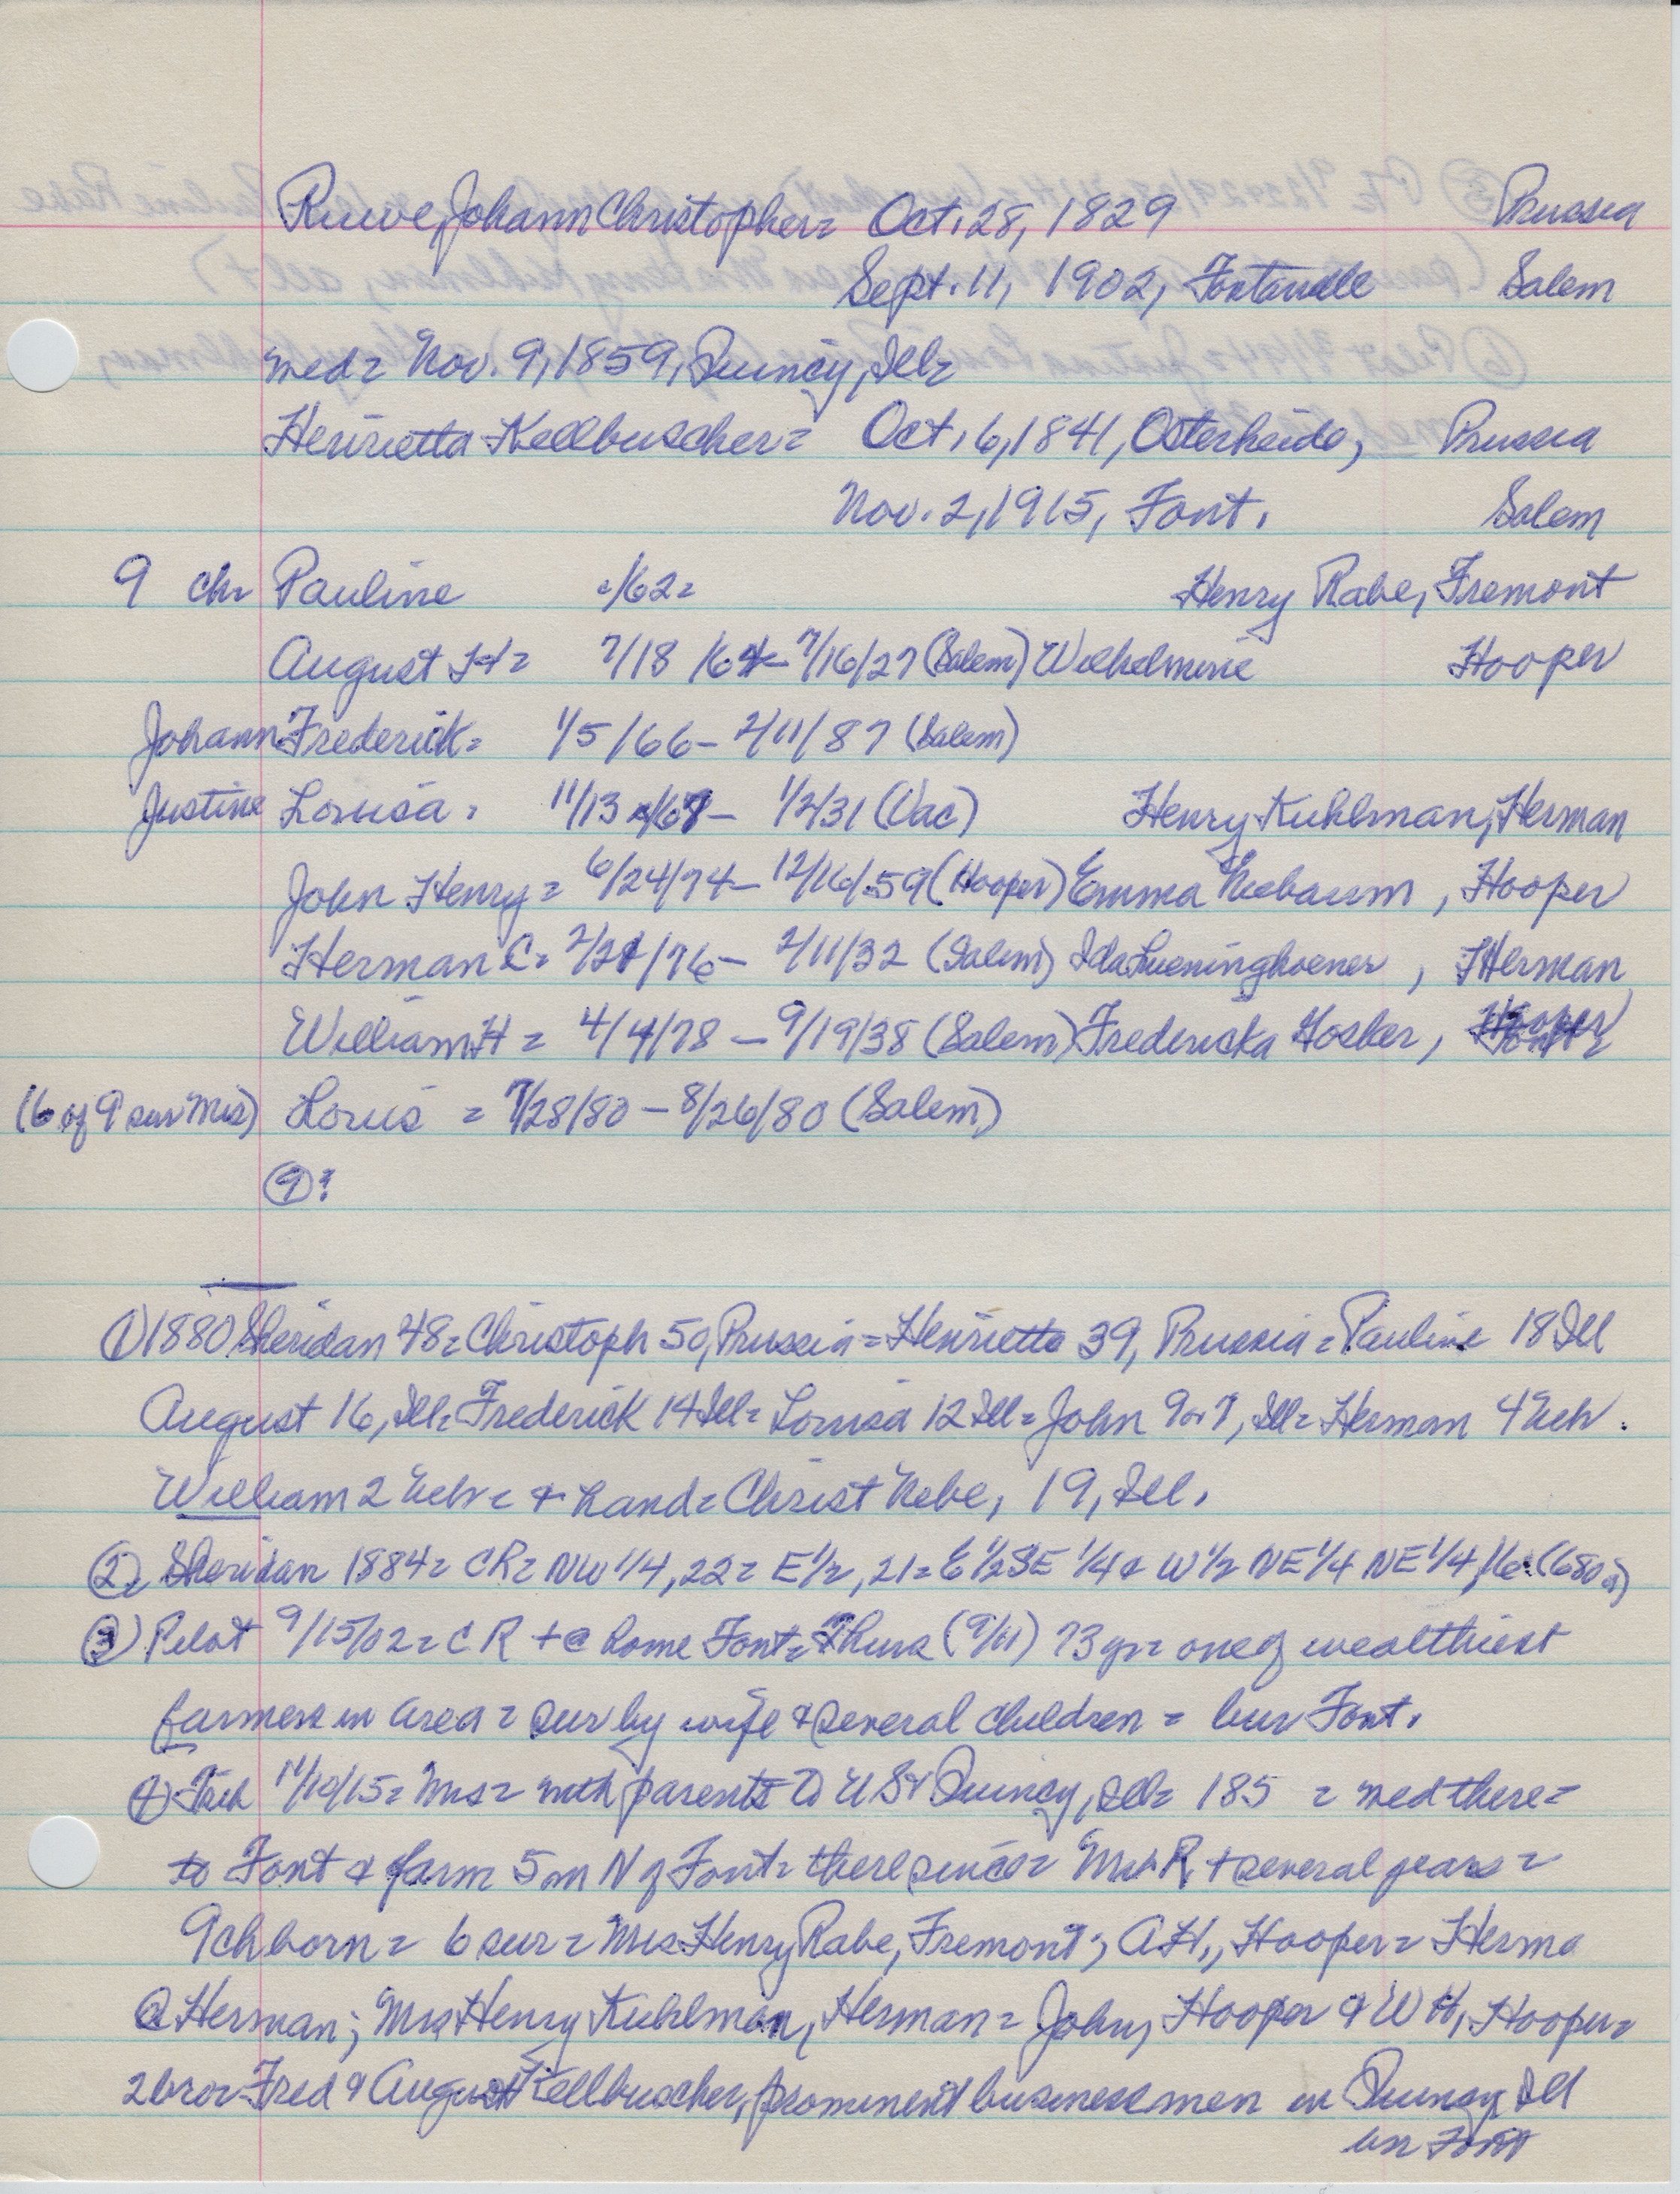 Ruwe, Johann Christopher = Oct. 28, 1829 Prussia
Sept. 11, 1902, Fontanelle Salem
med = Nov. 9, 1859, Quincy, Ill =
Henrietta Kellbuscher = Oct. 6, 1841, Osterheide, Prussia
Nov. 2, 1915, Font. Salem
9 ch = Pauline /62 = Henry Rabe, Fremont
August H = 7/18/64 - 7/16/27 (Salem) Wilhelmine Hooper
Johann Frederick = 1/5/66 - 2/11/87 (Salem)
Justine Louisa = 11/13/67 - 1/2/31 (Vac) Henry Kuhlman, Herman
John Henry = 6/24/74 - 12/16/59 (Hooper) Emma Niebaum, Hooper
Herman C = 2/21/76 - 2/11/32 (Salem) Ida Lueninghoener, Herman
William H = 4/4/78 - 9/19/38 (Salem) Fredericka Hosker,
(6 of 9 sur Mrs) Louis = 7/28/80 - 8/26/80 (Salem)
(9)?
(1) 1880 Sheridan 48 = Christoph 50, Prussia = Henrietta 39, Prussia = Pauline 18 Ill
August 16, Ill = Frederick 14 Ill = Louisa 12 Ill = John 9 or 7, Ill = Herman 4 Neb.
William 2 Neb = & hand = Christ Nebe, 19, Ill.
(2) Sheridan 1884 = CR = NW 1/4, 22 = E 1/2, 21 = E 1/2 SE 1/4 & W 1/2 NE 1/4 NE 1/4, 16 (680 a)
(3) Pilot 9/15/02 = C R + @ home Font = Thurs (9/11) 73 yr = one of wealthiest
farmers in area = sur by wife & several children = bur Font.
(4) Trib 11/10/15 = Mrs = with parents to US & Quincy, Ill = 185 = med there =
to Font & farm 5 m N of Font = there since = Mr R + several years =
9 ch born = 6 sur = Mrs Henry Rabe, Fremont; A H, Hooper = Herma
@ Herman; Mrs Henry Kuhlman, Herman = John, Hooper & W H, Hooper =
2 bro = Fred & August Kellbuscher, prominent businessmen in Quincy Ill
bur Font